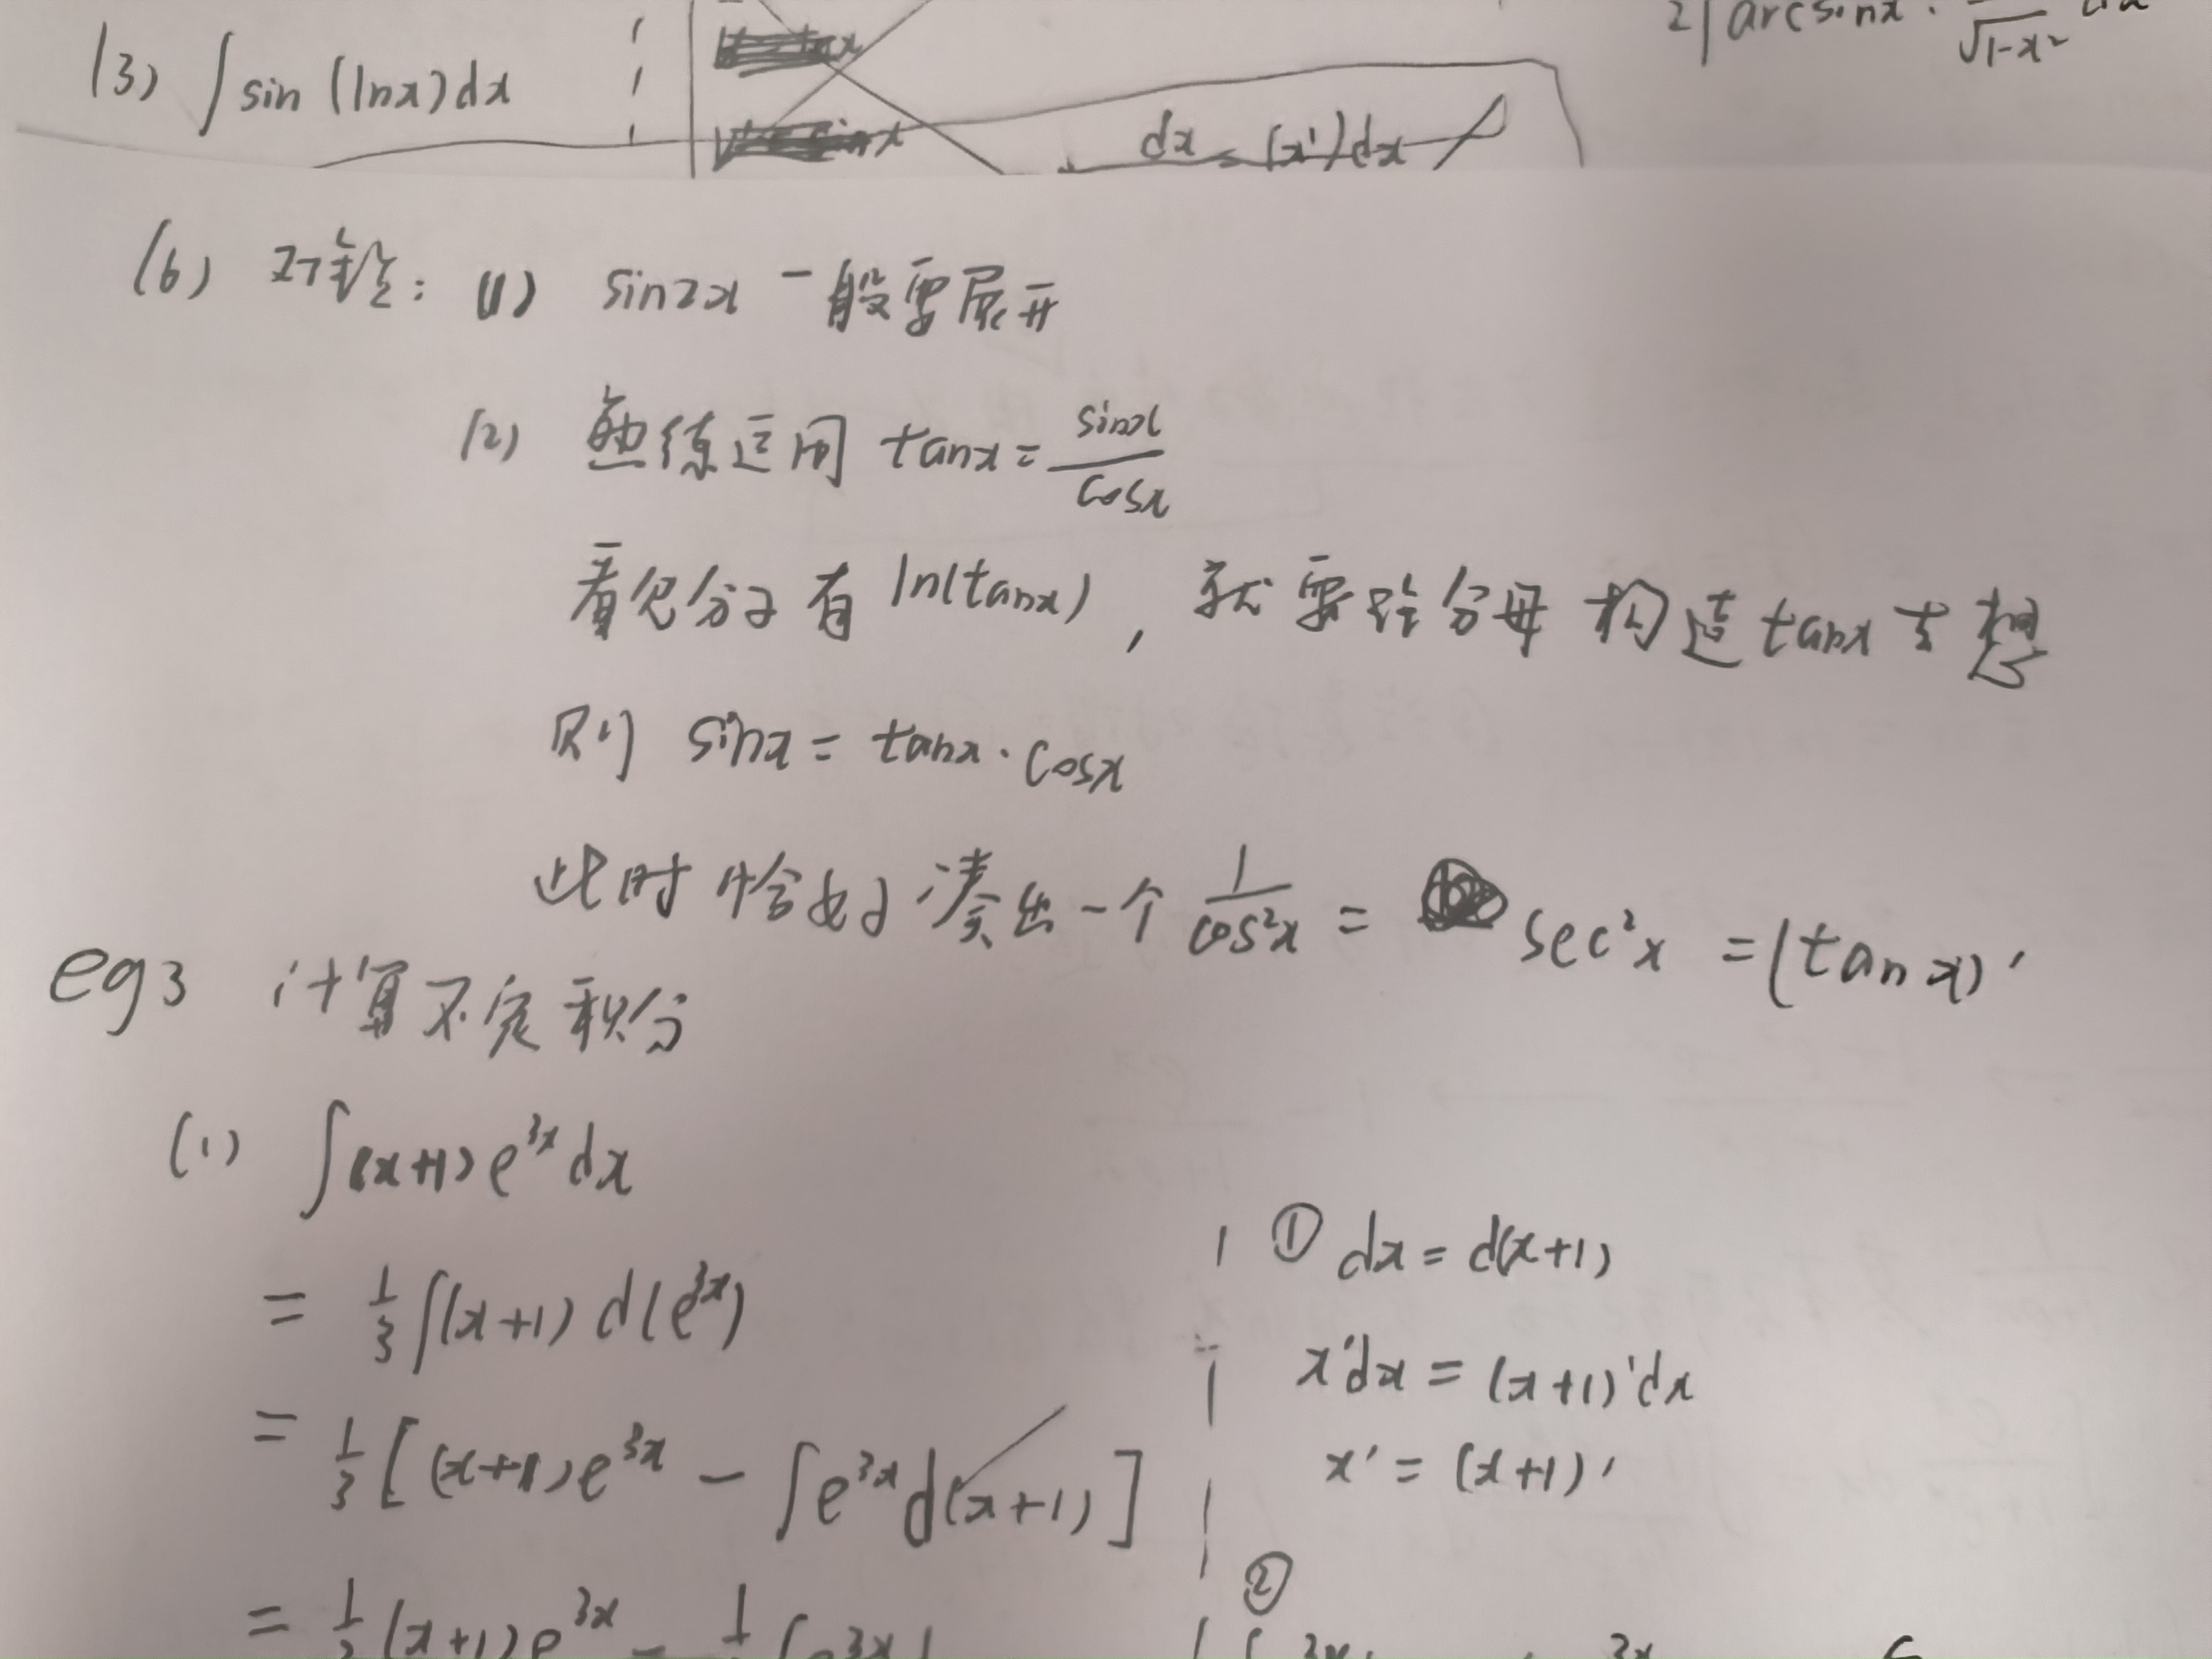 (3) ∫ sin (lnx) dx
dx = (x')dx
2∫ arcsinx ·
√1-x²
(6) 对错: (1) sin2x 一般要展开
(2) 熟练运用 tanx = sinx/cosx
看见分子有 ln(tanx), 就要往分母构造 tanx 去想
则 sinx = tanx · cosx
此时恰好凑出一个 1/cos²x = sec²x = (tanx)'
eg3 计算不定积分
(1) ∫(x+1)e³ˣdx
= 1/3 ∫(x+1) d(e³ˣ)
= 1/3 [(x+1)e³ˣ - ∫e³ˣd(x+1)]
= 1/3 (x+1)e³ˣ -
① dx = d(x+1)
x'dx = (x+1)'dx
x' = (x+1)'
②